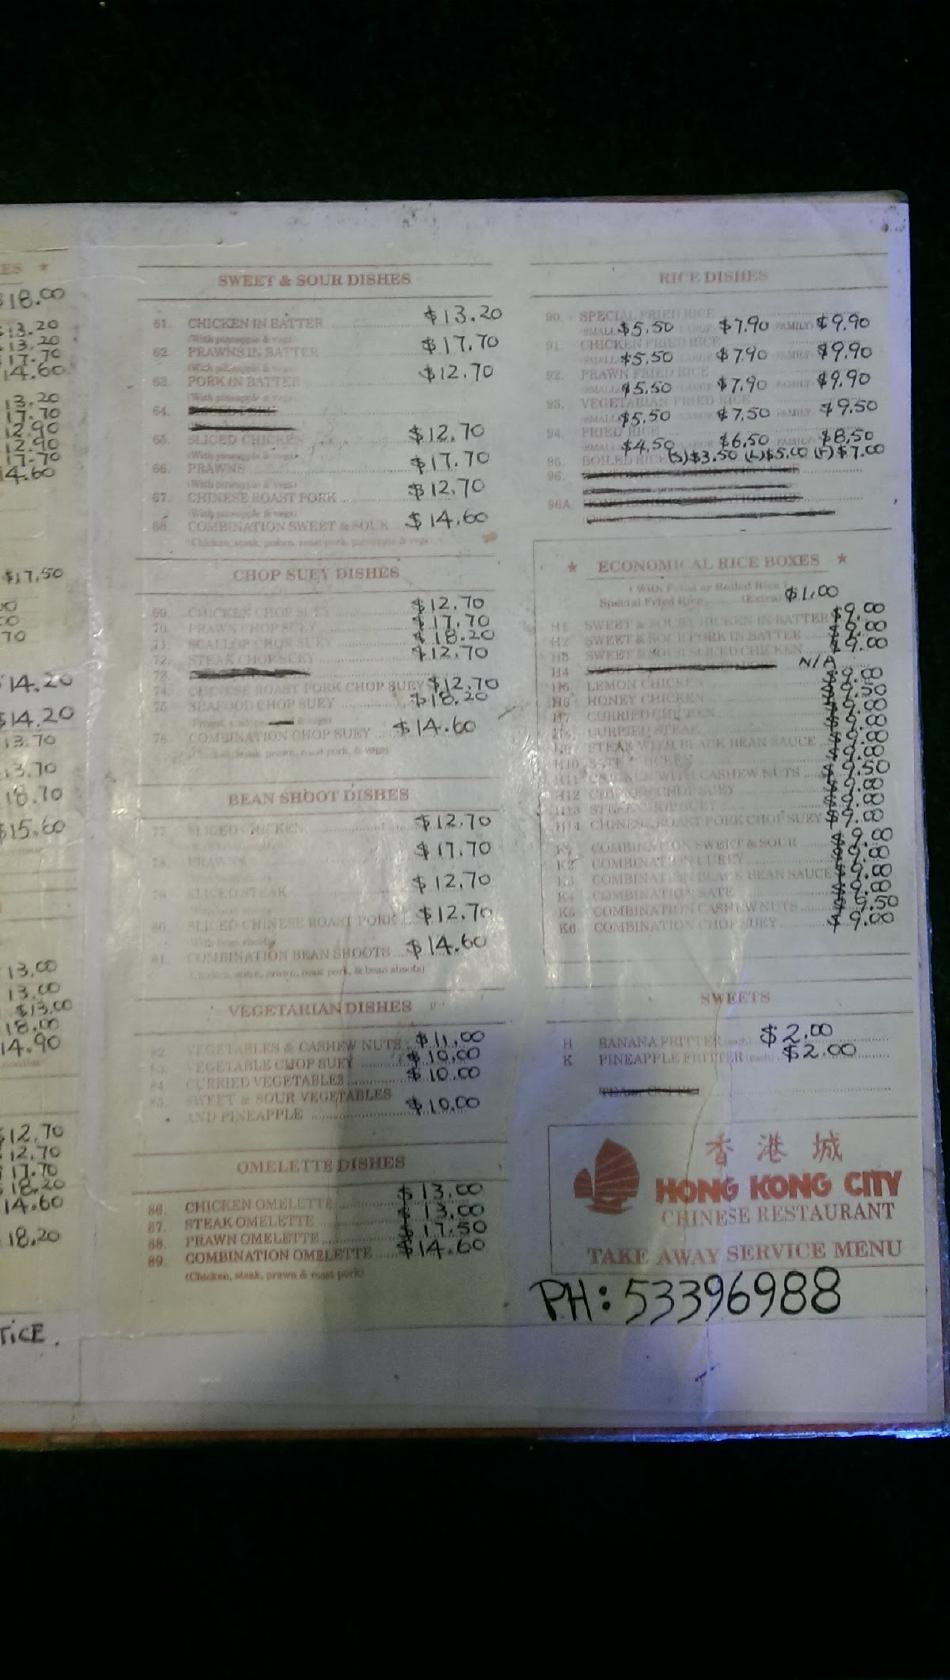 ES ★
$18.00
$13.20
$13.20
$17.70
14.60
13.20
17.70
12.90
12.90
17.70
14.60
$17.50
14.20
$14.20
13.70
13.70
18.70
$15.60
13.00
13.00
$13.00
18.00
14.90
$12.70
12.70
17.70
18.20
14.60
18.20
TICE.
SWEET & SOUR DISHES
61. CHICKEN IN BATTER $13.20
(With pineapple & vegs)
62. PRAWNS IN BATTER $17.70
(With pineapple & vegs)
63. PORK IN BATTER $12.70
(With pineapple & vegs)
64.
65. SLICED CHICKEN $12.70
(With pineapple & vegs)
66. PRAWNS $17.70
(With pineapple & vegs)
67. CHINESE ROAST PORK $12.70
(With pineapple & vegs)
68. COMBINATION SWEET & SOUR $14.60
(Chicken, steak, prawn, roast pork, pineapple & vegs)
CHOP SUEY DISHES
69. CHICKEN CHOP SUEY $12.70
70. PRAWN CHOP SUEY $17.70
71. SCALLOP CHOP SUEY $18.20
72. STEAK CHOP SUEY $12.70
73.
74. CHINESE ROAST PORK CHOP SUEY $12.70
75. SEAFOOD CHOP SUEY $18.20
76. COMBINATION CHOP SUEY $14.60
(Chicken, steak, prawn, roast pork & vegs)
BEAN SHOOT DISHES
77. SLICED CHICKEN $12.70
78. PRAWNS $17.70
79. SLICED STEAK $12.70
80. SLICED CHINESE ROAST PORK $12.70
(With bean shoots)
81. COMBINATION BEAN SHOOTS $14.60
(Chicken, steak, prawn, roast pork, & bean shoots)
VEGETARIAN DISHES
82. VEGETABLES & CASHEW NUTS $11.00
83. VEGETABLE CHOP SUEY $10.00
84. CURRIED VEGETABLES $10.00
85. SWEET & SOUR VEGETABLES
AND PINEAPPLE $10.00
OMELETTE DISHES
86. CHICKEN OMELETTE $13.00
87. STEAK OMELETTE $13.00
88. PRAWN OMELETTE $17.50
89. COMBINATION OMELETTE $14.60
(Chicken, steak, prawn & roast pork)
RICE DISHES
90. SPECIAL FRIED RICE
SMALL $5.50 LARGE $7.90 FAMILY $9.90
91. CHICKEN FRIED RICE
SMALL $5.50 LARGE $7.90 FAMILY $9.90
92. PRAWN FRIED RICE
SMALL $5.50 LARGE $7.90 FAMILY $9.90
93. VEGETARIAN FRIED RICE
SMALL $5.50 LARGE $7.50 FAMILY $9.50
94. FRIED RICE
SMALL $4.50 LARGE $6.50 FAMILY $8.50
95. BOILED RICE (S)$3.50 (L)$5.00 (F)$7.00
96.
96A.
★ ECONOMICAL RICE BOXES ★
(With Fried or Boiled Rice)
Special Fried Rice (Extra) $1.00
H1 SWEET & SOUR CHICKEN IN BATTER $9.00
H2 SWEET & SOUR PORK IN BATTER
H3 SWEET & SOUR SLICED CHICKEN $9.00
H4 N/A
H5 LEMON CHICKEN
H6 HONEY CHICKEN
H7 CURRIED CHICKEN
H8 CURRIED STEAK
H9 STEAK WITH BLACK BEAN SAUCE
H10 SATE CHICKEN
H11 CHICKEN WITH CASHEW NUTS
H12 CHICKEN CHOP SUEY
H13 STEAK CHOP SUEY
H14 CHINESE ROAST PORK CHOP SUEY
K1 COMBINATION SWEET & SOUR
K2 COMBINATION CURRY
K3 COMBINATION BLACK BEAN SAUCE
K4 COMBINATION SATE
K5 COMBINATION CASHEW NUTS 9.50
K6 COMBINATION CHOP SUEY 9.00
SWEETS
H BANANA FRITTER (each) $2.00
K PINEAPPLE FRITTER (each) $2.00
香港城
HONG KONG CITY
CHINESE RESTAURANT
TAKE AWAY SERVICE MENU
PH: 53396988